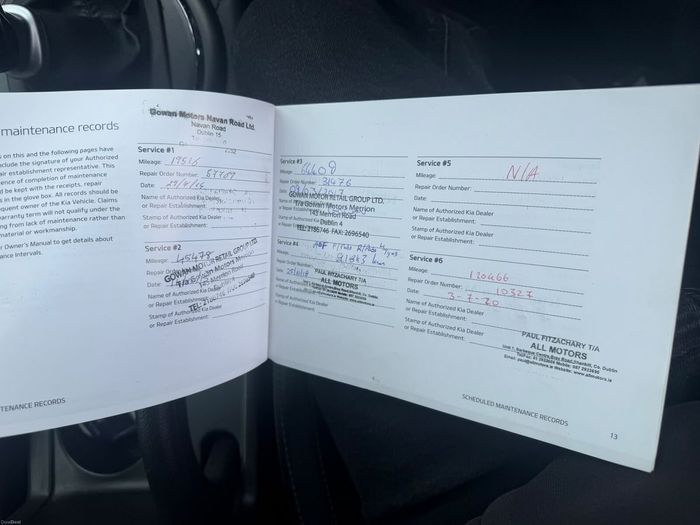 maintenance records
on this and the following pages have
include the signature of your Authorized
air establishment representative. This
ence of completion of maintenance
d be kept with the receipts, repair
s in the glove box. All records should be
quent owner of the Kia Vehicle. Claims
arranty term will not qualify under the
ng from lack of maintenance rather than
material or workmanship.
r Owner's Manual to get details about
ance Intervals.
TENANCE RECORDS
Gowan Motors Navan Road Ltd.
Navan Road
Dublin 15
Service #1
Mileage:
Repair Order Number:
Date:
Name of Authorized Kia Dealer
or Repair Establishment:
Stamp of Authorized Kia Dealer
or Repair Establishment:
Service #2
Mileage: 45478
Repair Order
Date:
Name of Authorized Kia Dealer
or Repair Establishment:
Stamp of Authorized Kia Dealer
or Repair Establishment:
GOWAN MOTOR RETAIL GROUP LTD.
T/a Gowan Motors Merrion
143 Merrion Road
Service #3
Mileage: 64408
Repair Order Number: 31476
Date: 09/03/2017
GOWAN MOTOR RETAIL GROUP LTD.
T/a Gowan Motors Merrion
143 Merrion Road
Dublin 4
TEL: 2185746 FAX: 2696540
Service #4
Mileage:
Repair Order Number:
Date:
PAUL FITZACHARY T/A
ALL MOTORS
Service #5
Mileage: N/A
Repair Order Number:
Date:
Name of Authorized Kia Dealer
or Repair Establishment:
Stamp of Authorized Kia Dealer
or Repair Establishment:
Service #6
Mileage: 120466
Repair Order Number: 10327
Date: 3-7-20
Name of Authorized Kia Dealer
or Repair Establishment:
Stamp of Authorized Kia Dealer
or Repair Establishment:
PAUL FITZACHARY T/A
ALL MOTORS
SCHEDULED MAINTENANCE RECORDS
13